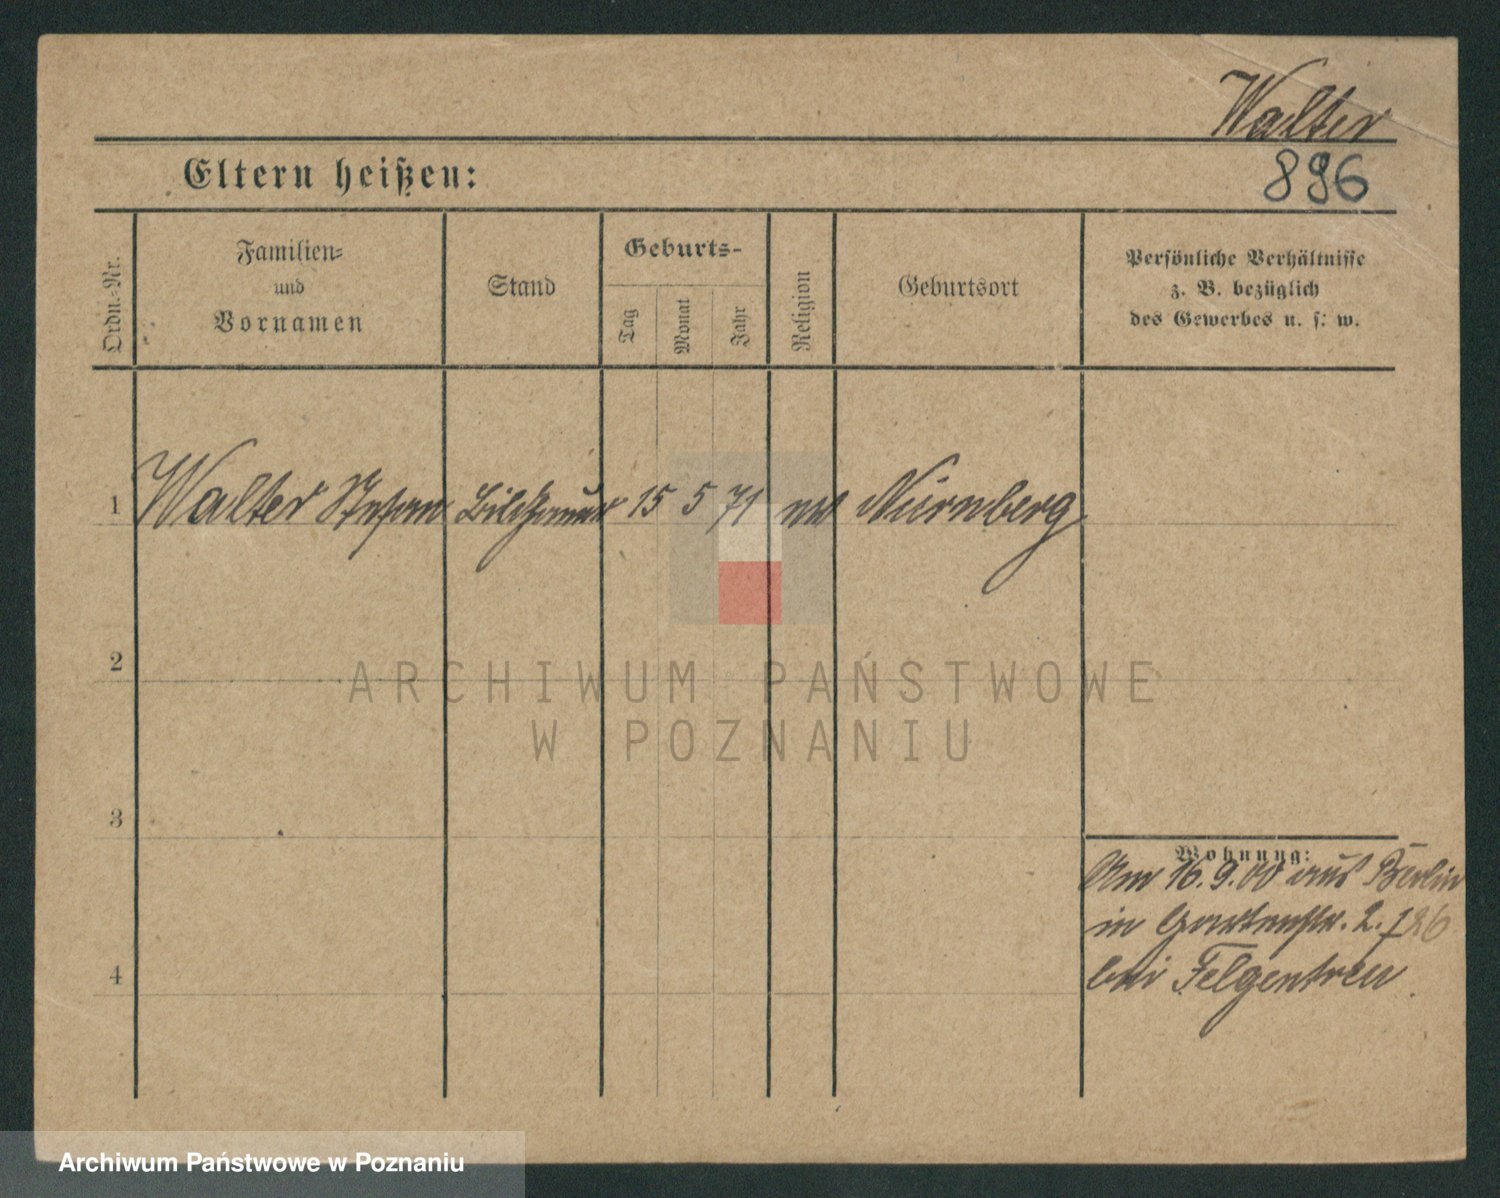 Walter
Eltern heißen:
896
Ordn.-Nr.
Familien- und Vornamen
Stand
Geburts-
Tag
Monat
Jahr
Religion
Geburtsort
Persönliche Verhältnisse
z. B. bezüglich
des Gewerbes u. s. w.
1 Walter Stefan Bildhauer 15 5 71 Nürnberg
2
3
4
Wohnung:
Am 16.9.00 aus Berlin
in Gartenstr. 2.
bei Felgentreu
ARCHIWUM PAŃSTWOWE
W POZNANIU
Archiwum Państwowe w Poznaniu